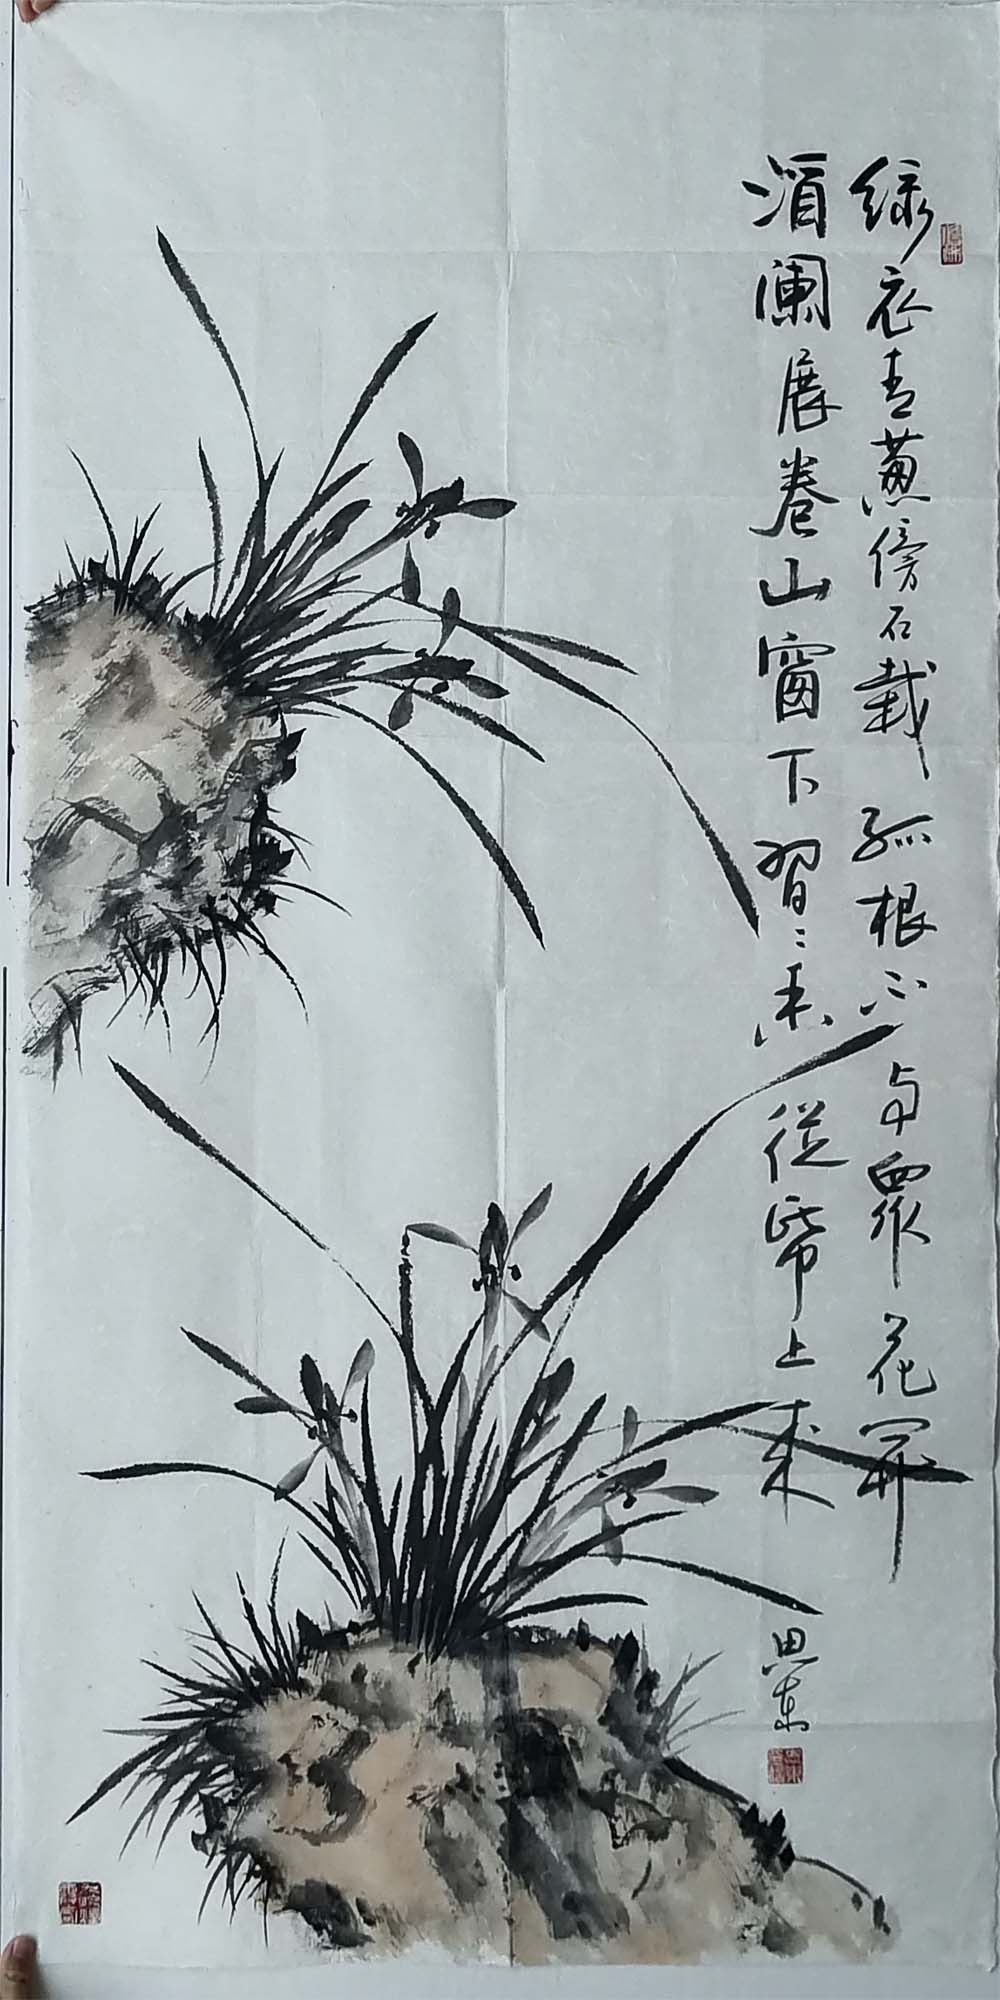 绿衣青蔥傍石栽孤根不与眾花開
酒闌展卷山窗下習〻香從紙上來
思東